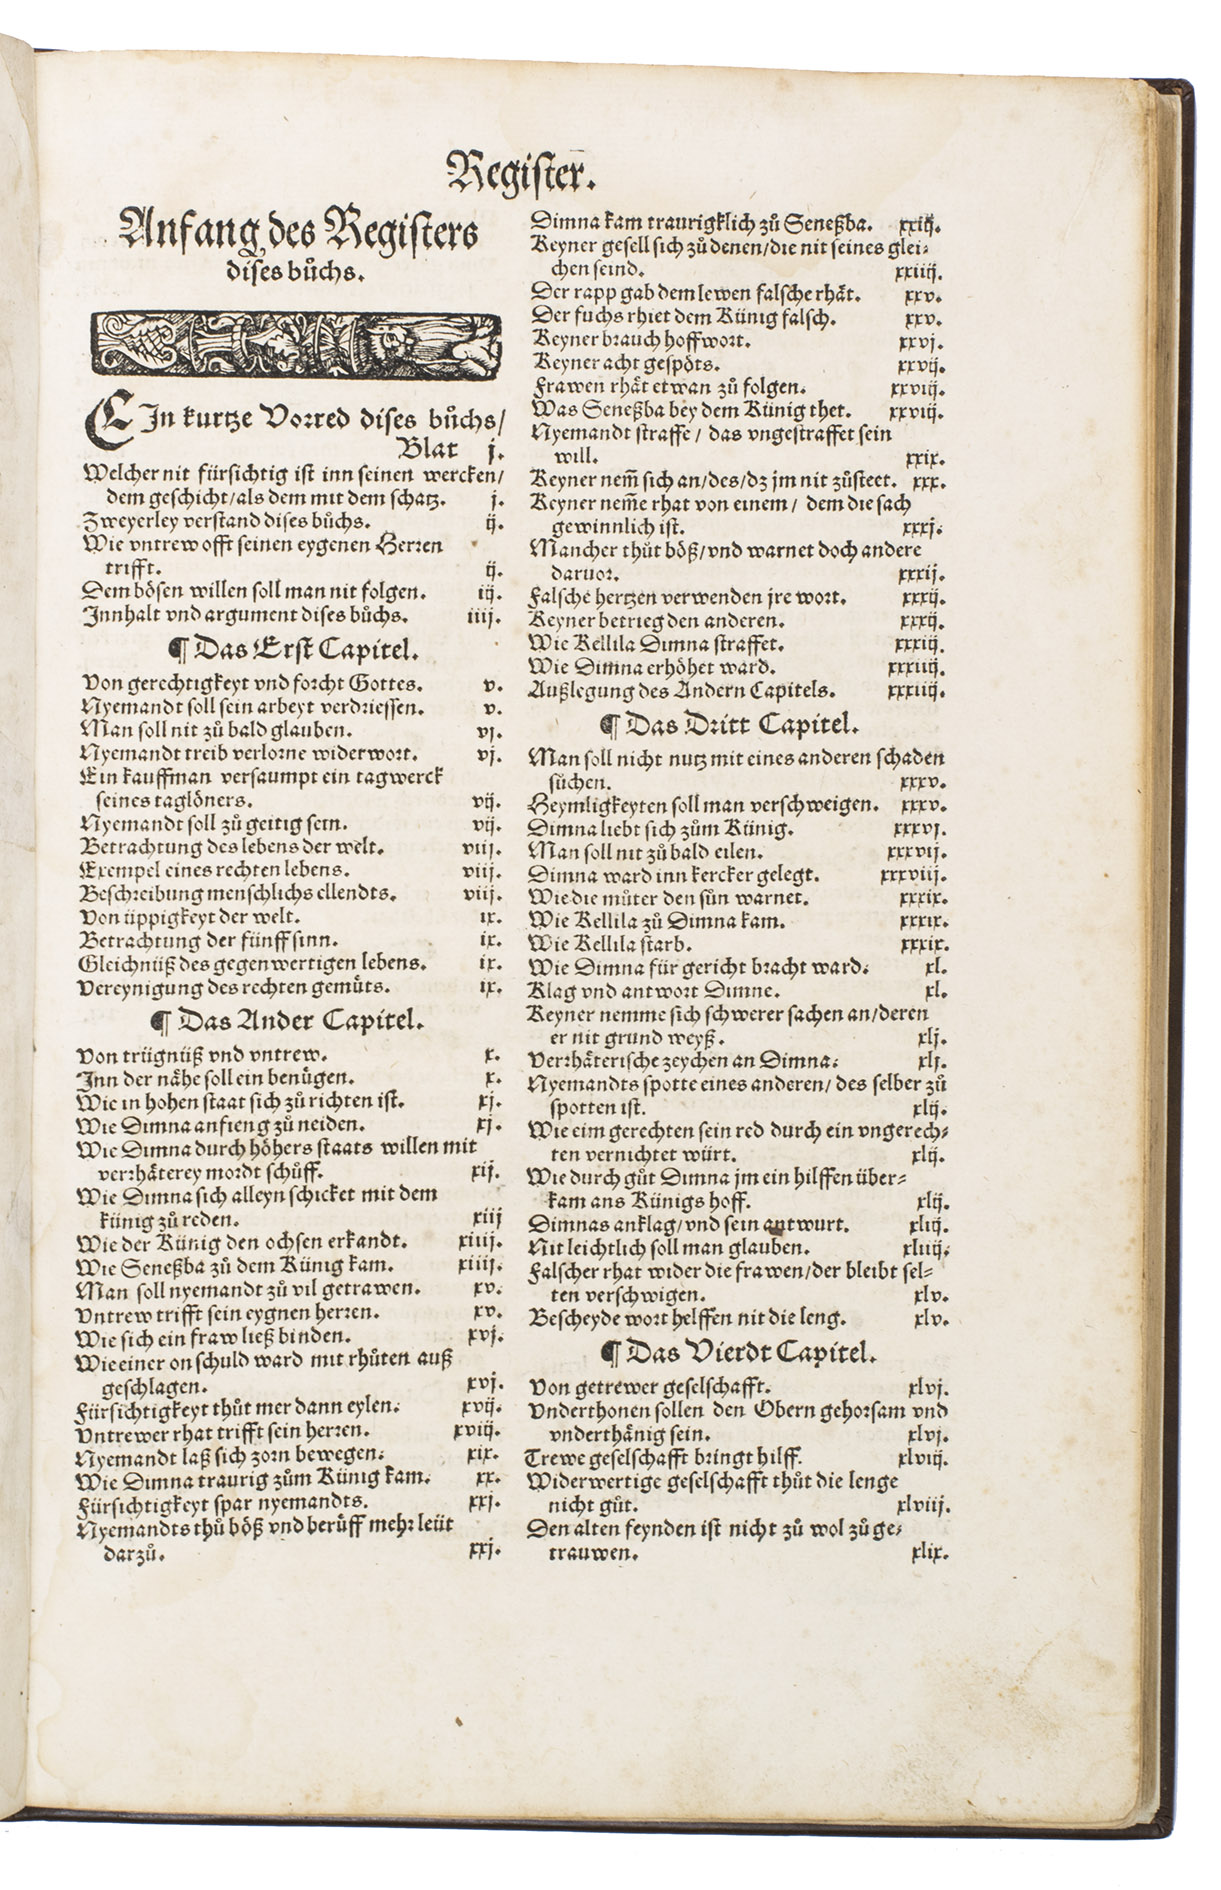 Register.
Anfang des Registers
dises bůchs.
EIn kurtze Vorred dises bůchs/
Blat j.
Welcher nit fürsichtig ist inn seinen wercken/
dem geschicht/als dem mit dem schatz. j.
Zweyerley verstand dises bůchs. ij.
Wie vntrew offt seinen eygenen Herren
trifft. ij.
Dem bösen willen soll man nit folgen. iij.
Innhalt vnd argument dises bůchs. iiij.
¶ Das Erst Capitel.
Von gerechtigkeyt vnd forcht Gottes. v.
Nyemandt soll sein arbeyt verdriessen. v.
Man soll nit zů bald glauben. vj.
Nyemandt treib verlorne widerwort. vj.
Ein kauffman versaumpt ein tagwerck
seines taglöners. vij.
Nyemandt soll zů geitig sein. vij.
Betrachtung des lebens der welt. viij.
Exempel eines rechten lebens. viij.
Beschreibung menschlichs ellendts. viij.
Von üppigkeyt der welt. ix.
Betrachtung der fünff sinn. ix.
Gleichnüß des gegenwertigen lebens. ix.
Vereynigung des rechten gemüts. ix.
¶ Das Ander Capitel.
Von trügnüß vnd vntrew. x.
Inn der nähe soll ein benügen. x.
Wie in hohen staat sich zů richten ist. xj.
Wie Dimna anfieng zů neiden. xj.
Wie Dimna durch höhers staats willen mit
verrhäterey mordt schůff. xij.
Wie Dimna sich alleyn schicket mit dem
künig zů reden. xiij
Wie der Künig den ochsen erkandt. xiiij.
Wie Seneßba zů dem Künig kam. xiiij.
Man soll nyemandt zů vil getrawen. xv.
Vntrew trifft sein eygnen herren. xv.
Wie sich ein fraw ließ binden. xvj.
Wie einer on schuld ward mit rhůten auß
geschlagen. xvj.
Fürsichtigkeyt thůt mer dann eylen. xvij.
Vntrewer rhat trifft sein herren. xviij.
Nyemandt laß sich zorn bewegen. xix.
Wie Dimna traurig zům Künig kam. xx.
Fürsichtigkeyt spar nyemandts. xxj.
Nyemandts thů böß vnd berůff mehr leüt
darzů. xxj.
Dimna kam traurigklich zů Seneßba. xxiij.
Keyner gesell sich zů denen/die nit seines glei-
chen seind. xxiiij.
Der rapp gab dem lewen falsche rhät. xxv.
Der fuchs rhiet dem Künig falsch. xxv.
Keyner brauch hoffwort. xxvj.
Keyner acht gespöts. xxvij.
Frawen rhät etwan zů folgen. xxviij.
Was Seneßba bey dem Künig thet. xxviij.
Nyemandt straffe/ das vngestraffet sein
will. xxix.
Keyner nem̃ sich an/des/dz jm nit zůsteet. xxx.
Keyner nem̃e rhat von einem/ dem die sach
gewinnlich ist. xxxj.
Mancher thůt böß/vnd warnet doch andere
daruor. xxxij.
Falsche hertzen verwenden jre wort. xxxij.
Keyner betrieg den anderen. xxxij.
Wie Kellila Dimna straffet. xxxiij.
Wie Dimna erhöhet ward. xxxiiij.
Außlegung des Andern Capitels. xxxiiij.
¶ Das Dritt Capitel.
Man soll nicht nutz mit eines anderen schaden
sůchen. xxxv.
Heymligkeyten soll man verschweigen. xxxv.
Dimna liebt sich zům Künig. xxxvj.
Man soll nit zů bald eilen. xxxvij.
Dimna ward inn kercker gelegt. xxxviij.
Wie die můter den sůn warnet. xxxix.
Wie Kellila zů Dimna kam. xxxix.
Wie Kellila starb. xxxix.
Wie Dimna für gericht bracht ward. xl.
Klag vnd antwort Dimne. xl.
Keyner nemme sich schwerer sachen an/deren
er nit grund weyß. xlj.
Verrhäterische zeychen an Dimna. xlj.
Nyemandts spotte eines anderen/ des selber zů
spotten ist. xlij.
Wie eim gerechten sein red durch ein vngerech-
ten vernichtet würt. xlij.
Wie durch gůt Dimna jm ein hilffen über-
kam ans Künigs hoff. xlij.
Dimnas anklag/vnd sein antwurt. xliij.
Nit leichtlich soll man glauben. xliiij.
Falscher rhat wider die frawen/der bleibt sel-
ten verschwigen. xlv.
Bescheyde wort helffen nit die leng. xlv.
¶ Das Vierdt Capitel.
Von getrewer geselschafft. xlvj.
Vnderthonen sollen den Obern gehorsam vnd
vnderthänig sein. xlvj.
Trewe geselschafft bringt hilff. xlviij.
Widerwertige geselschafft thůt die lenge
nicht gůt. xlviij.
Den alten feynden ist nicht zů wol zů ge-
trauwen. xlix.